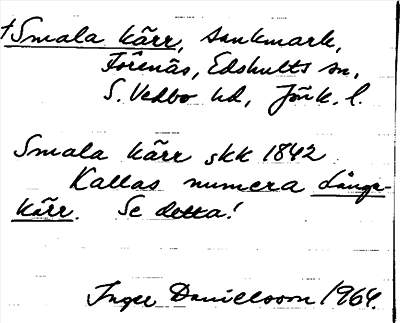 †Smala kärr, sankmark,
Förenäs, Edshults sn,
S. Vedbo hd, Jönk. l.
Smala kärr skk 1842
Kallas numera Långe-
kärr. Se detta!
Inger Danielsson 1964.